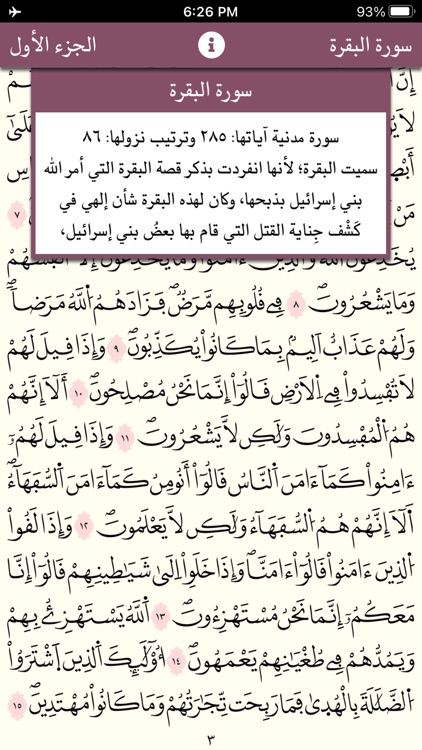 6:26 PM
93%
سورة البقرة
الجزء الأول
سورة البقرة
سورة مدنية آياتها: ٢٨٥ وترتيب نزولها: ٨٦
سميت البقرة؛ لأنها انفردت بذكر قصة البقرة التي أمر الله
بني إسرائيل بذبحها، وكان لهذه البقرة شأن إلهي في
كَشْف جِناية القتل التي قام بها بعضُ بني إسرائيل،
إِنَّ
٧
يُخَٰدِعُونَ اَللَّهَ وَالذِينَ ءَامَنُواْ وَمَا يُخَٰدِعُونَ إِلَّا أَنفُسَهُمْ
وَمَا يَشْعُرُونَۖ ٨ فِے قُلُوبِهِم مَّرَضٞ فَزَادَهُمُ اُللَّهُ مَرَضاٗۖ
وَلَهُمْ عَذَابٌ أَلِيمُۢ بِمَا كَانُواْ يُكَذِّبُونَۖ ٩ وَإِذَا قِيلَ لَهُمْ
لَا تُفْسِدُواْ فِے اِلْأَرْضِ قَالُوٓاْ إِنَّمَا نَحْنُ مُصْلِحُونَۖ ١٠ أَلَآ إِنَّهُمْ
هُمُ اُلْمُفْسِدُونَ وَلَٰكِن لَّا يَشْعُرُونَۖ ١١ وَإِذَا قِيلَ لَهُمُۥٓ
ءَامِنُواْ كَمَآ ءَامَنَ اَلنَّاسُ قَالُوٓاْ أَنُومِنُ كَمَآ ءَامَنَ اَلسُّفَهَآءُۖ
أَلَآ إِنَّهُمْ هُمُ اُلسُّفَهَآءُ وَلَٰكِن لَّا يَعْلَمُونَۖ ١٢ وَإِذَا لَقُواْ
اُلذِينَ ءَامَنُواْ قَالُوٓاْ ءَامَنَّاۖ وَإِذَا خَلَوِاْ اِلَىٰ شَيَٰطِينِهِمْ قَالُوٓاْ إِنَّا
مَعَكُمُۥٓ إِنَّمَا نَحْنُ مُسْتَهْزِءُونَۖ ١٣ اَللَّهُ يَسْتَهْزِۓُ بِهِمْ
وَيَمُدُّهُمْ فِے طُغْيَٰنِهِمْ يَعْمَهُونَۖ ١٤ أُوْلَٰٓئِكَ اَلذِينَ اَشْتَرَوُاْ
اُلضَّلَٰلَةَ بِالْهُدَىٰ فَمَا رَبِحَت تِّجَٰرَتُهُمْ وَمَا كَانُواْ مُهْتَدِينَۖ ١٥
٣